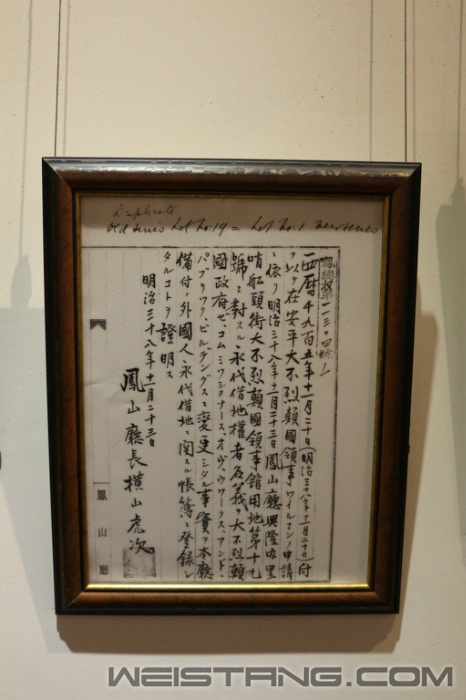 Duplicate
Old Series Lot No: 19 = Lot No: 1 New Series
西暦千九百五年十一月二十日(明治三十八年十一月二十日)付
ヲ以テ在安平大不列顛國領事ワイルマンノ申請
ニ依リ明治三十八年十一月二十三日鳳山廳興隆內里
哨船頭街大不列顛國領事館用地第十九
號ニ對スル永代借地權者名義ヲ大不列顛
國政府ゼ、コムミツシヨナース、オヴ、ウワークス、アンド、
パブリツク、ビルデングスト變更シタル事實ヲ本廳
備付ノ外國人永代借地ニ関スル帳簿ニ登録シ
タルコトヲ證明ス
明治三十八年十一月二十三日
鳳山廳長橫山虎次
鳳山廳
WEISTANG.COM